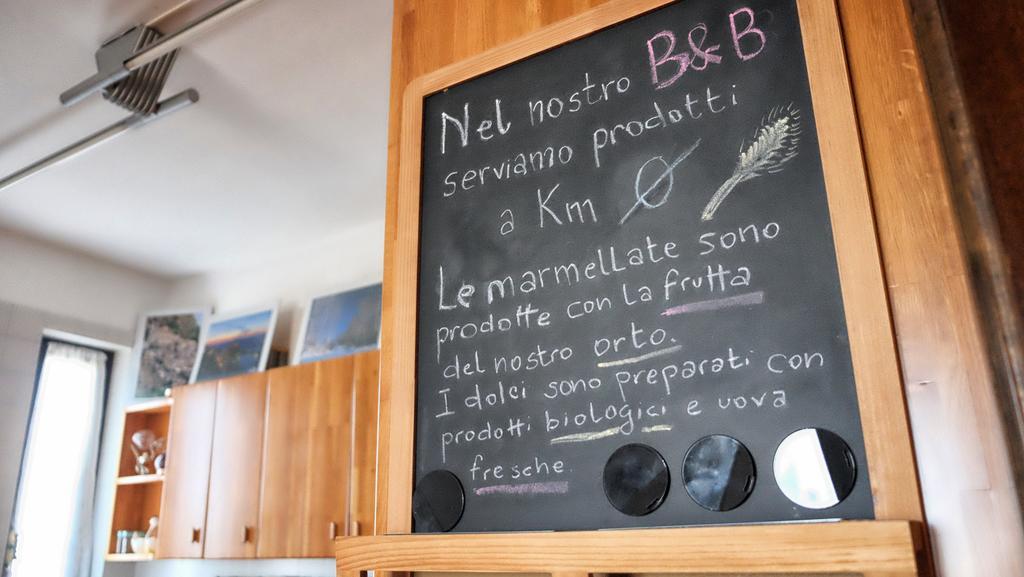 Nel nostro B&B
serviamo prodotti
a Km 0
Le marmellate sono
prodotte con la frutta
del nostro orto.
I dolci sono preparati con
prodotti biologici e uova
fresche.